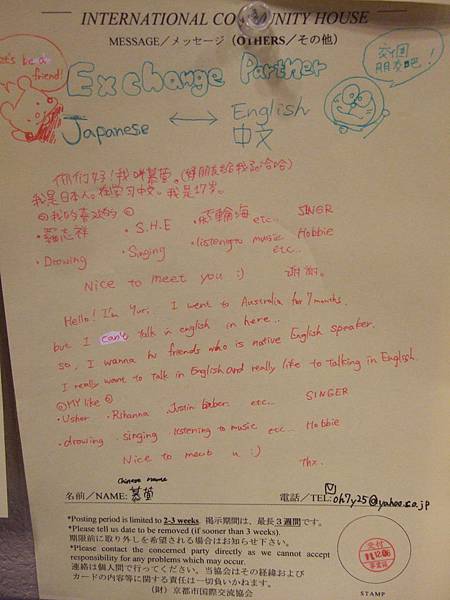 INTERNATIONAL COMMUNITY HOUSE
MESSAGE／メッセージ（OTHERS／その他）
let's be a friend!
交個朋友吧!
Exchange Partner
Japanese ←→ English
中文
你们好!我叫慕蕾。(好朋友給我記哈哈)
我是日本人。在学习中文。我是17岁。
我的喜欢的
・羅志祥 ・S.H.E ・飛輪海 etc.. SINGR
・Drowing ・Singing ・listening to music etc.. Hobbie
Nice to meet you :) 谢谢。
Hello! I'm Yuri. I went to Australia for 7 months.
but I can't talk in english in here...
so, I wanna be friends who is native English speaker.
I really want to Talk in English and really like to talking in English.
MY like
・Usher ・Rihanna Justin bieber. etc.. SINGER
・drowing ・singing listening to music etc.. Hobbie
Nice to meet u :) Thx.
chinese name
名前／NAME: 慕蕾 電話／TEL: oh7y25@yahoo.co.jp
*Posting period is limited to 2-3 weeks. 掲示期間は、最長3週間です。
*Please tell us date to be removed (if sooner than 3 weeks).
期限前に取り外しを希望される場合はお知らせ下さい。
*Please contact the concerned party directly as we cannot accept
responsibility for any problems which may occur.
連絡は個人間で行ってください。当協会はその経緯および
カードの内容等に関する責任は一切負いかねます。
（財）京都市国際交流協会
受付
STAMP